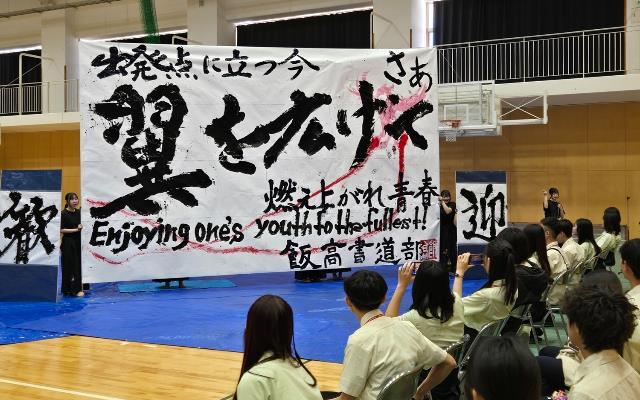 歓
出発点に立つ今
さあ
翼を広げて
燃え上がれ青春
Enjoying one's youth to the fullest!
飯高書道部
迎